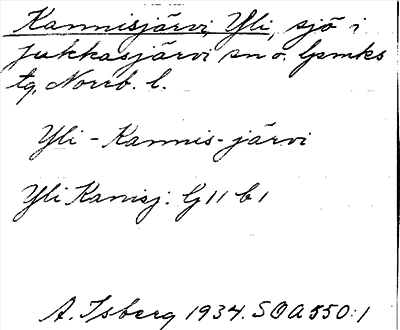 Kannisjärvi, Yli, sjö i
Jukkasjärvi sn o. lpmks
tg. Norrb. l.
Yli - Kannis - järvi
Yli Kanisj: G 11 b 1
A. Isberg 1934. SOA 550:1